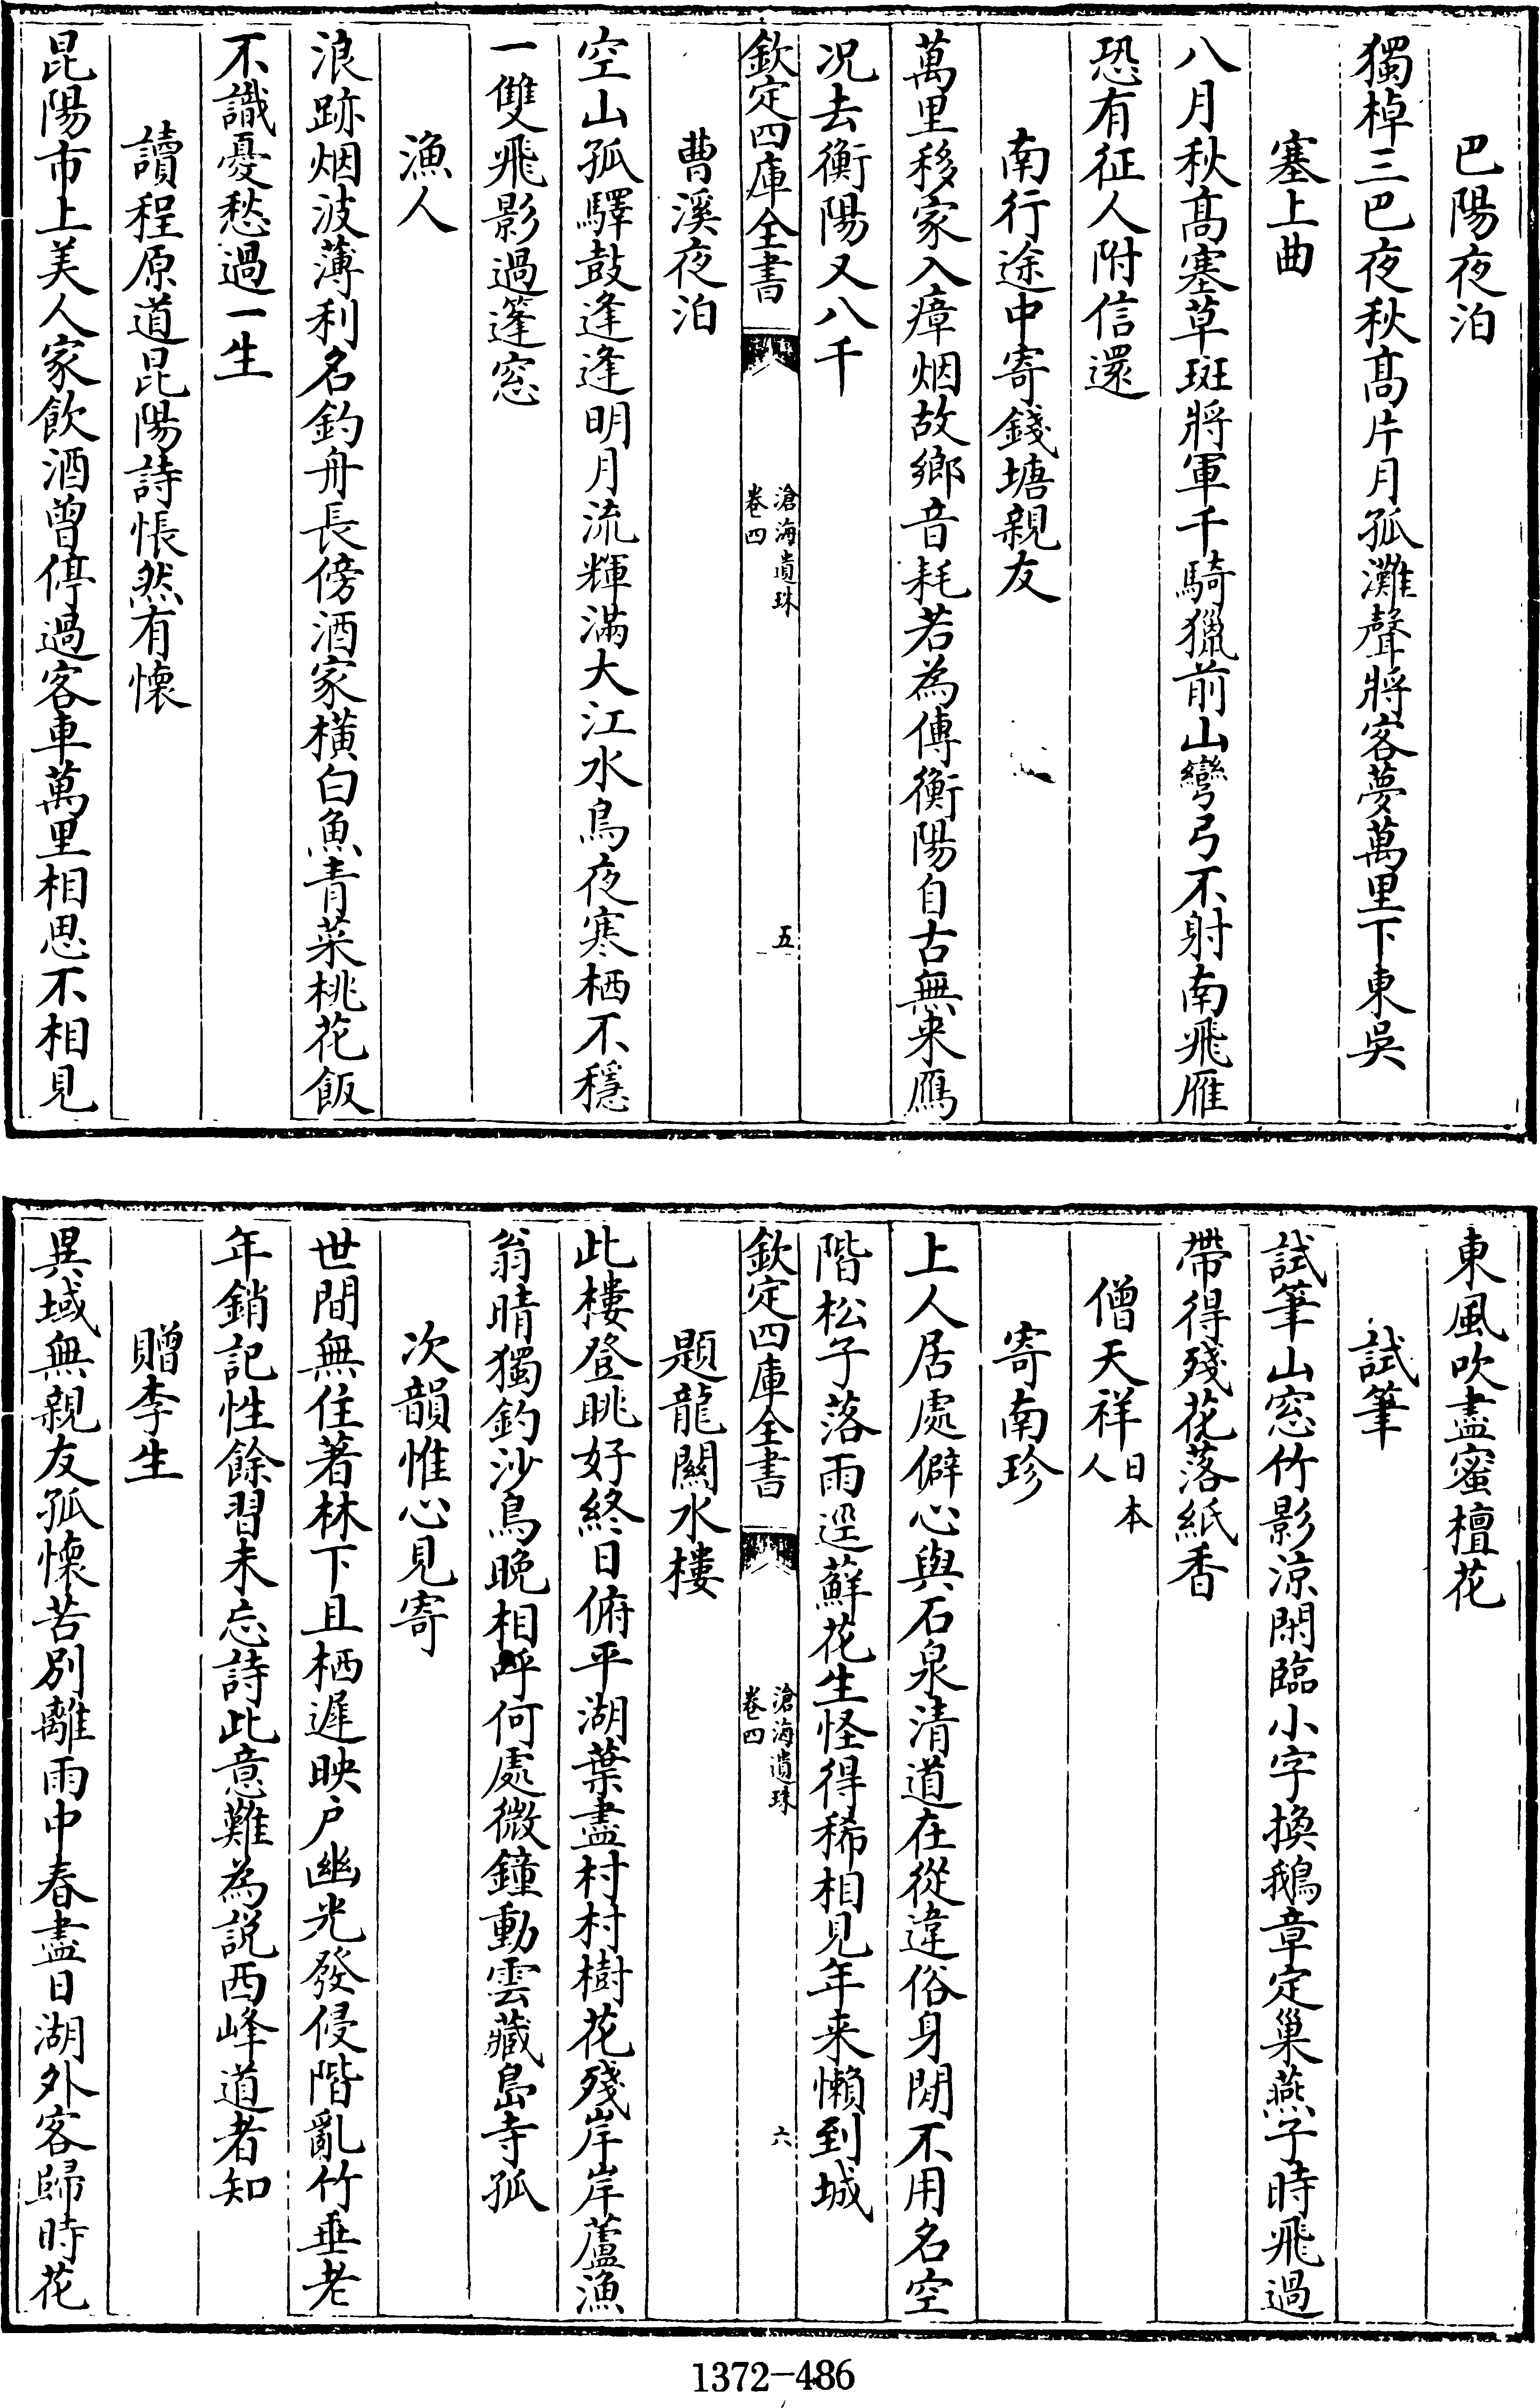 巴陽夜泊
獨棹三巴夜秋髙片月孤灘聲將客夢萬里下東吳
塞上曲
八月秋髙塞草斑將軍千騎獵前山彎弓不射南飛雁
恐有征人附信還
南行途中寄錢塘親友
萬里移家入瘴烟故鄉音耗若為傳衡陽自古無来鴈
况去衡陽又八千
欽定四庫全書
滄海遺珠
卷四
五
曹溪夜泊
空山孤驛鼓逢逢明月流輝滿大江水鳥夜寒栖不穩
一雙飛影過篷窓
漁人
浪跡烟波薄利名釣舟長傍酒家橫白魚青菜桃花飯
不識憂愁過一生
讀程原道昆陽詩悵然有懷
昆陽市上美人家飲酒曾停過客車萬里相思不相見
東風吹盡蜜檀花
試筆
試筆山窓竹影涼閑臨小字換鵝章定巢燕子時飛過
帶得殘花落紙香
僧天祥日本人
寄南珍
上人居處僻心與石泉清道在從違俗身閒不用名空
階松子落雨逕蘚花生怪得稀相見年来懶到城
欽定四庫全書
滄海遺珠
卷四
六
題龍關水樓
此樓登眺好終日俯平湖葉盡村村樹花殘岸岸蘆漁
翁晴獨釣沙鳥晚相呼何處微鐘動雲藏島寺孤
次韻惟心見寄
世間無住著林下且栖遲映户幽光發侵階亂竹垂老
年銷記性餘習未忘詩此意難為説西峰道者知
贈李生
異域無親友孤懷苦别離雨中春盡日湖外客歸時花
1372-486